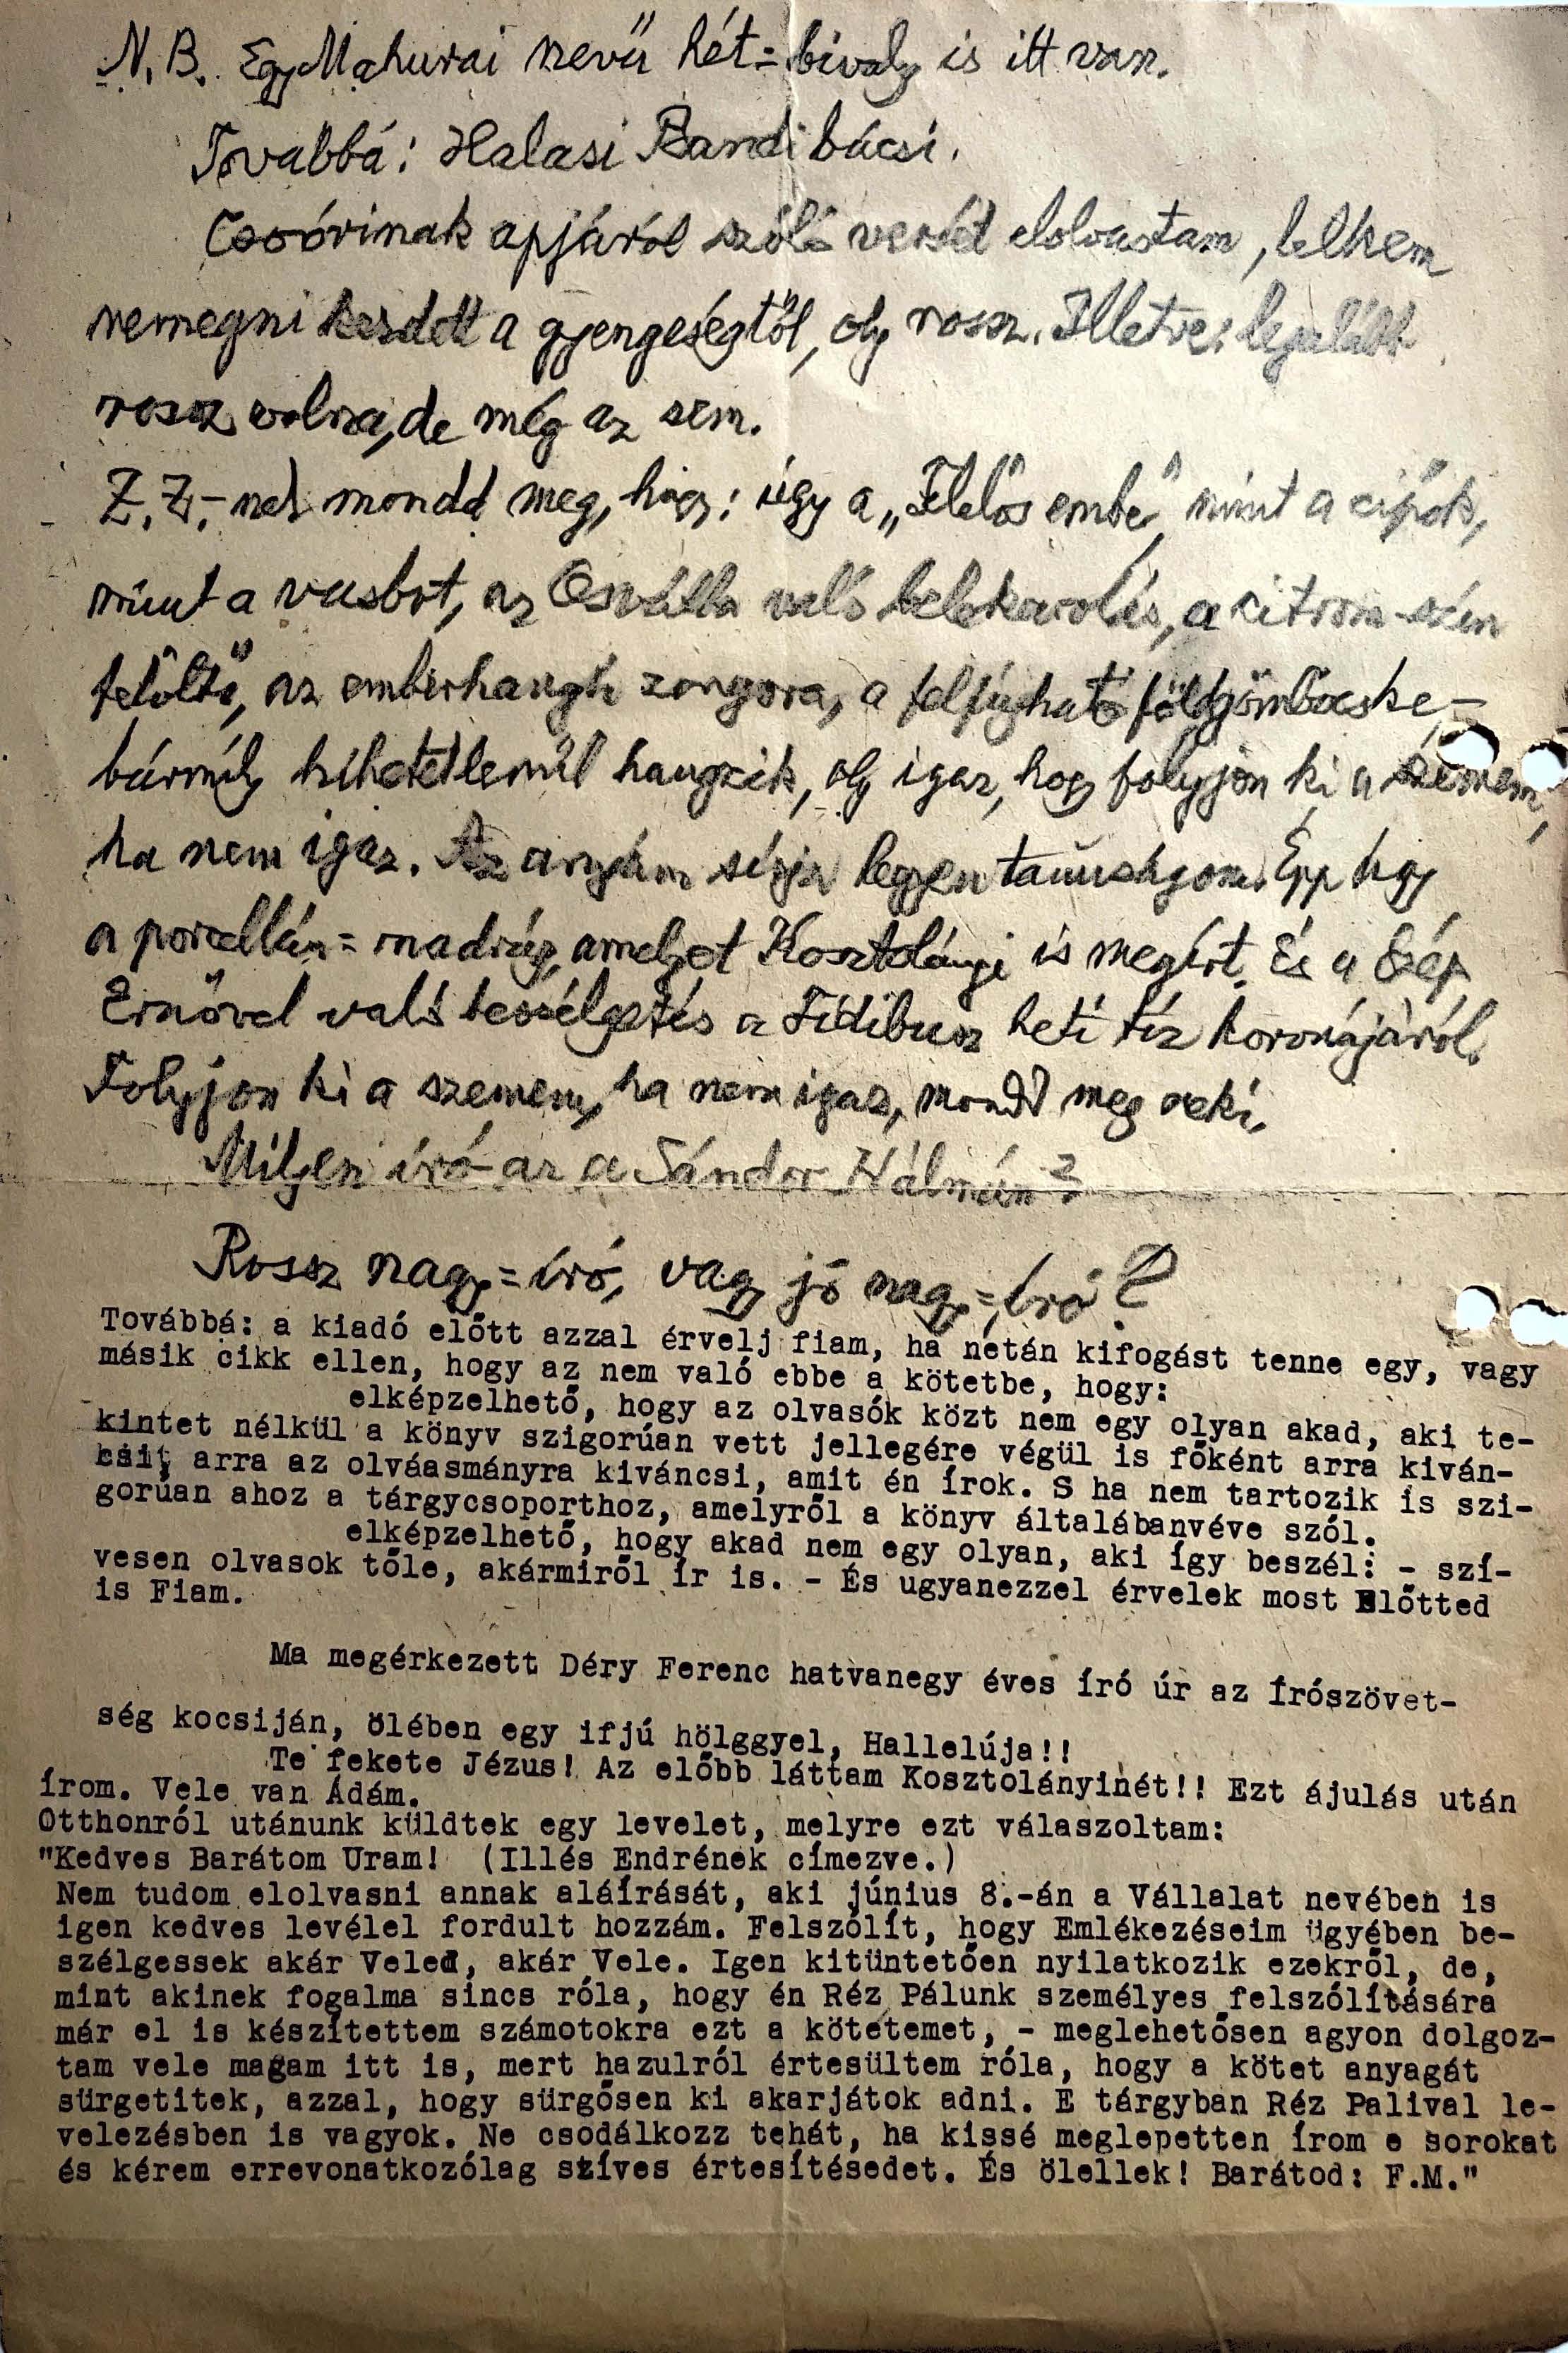 N.B. Egy Mahurai nevű hét=bivaly is itt van.
Továbbá: Halasi Bandi bácsi.
Csoórinak apjáról szóló versét elolvastam, lelkem
remegni kezdett a gyengeségtől, oly rossz. Illetve: legalább
rossz volna, de még az sem.
Z.Z.-nek mondd meg, hogy: úgy a „Felelős ember", mint a cipők,
mint a vasbot, az Osvátba való belekarolás, a citrom-szín
felöltő, az emberhangú zongora, a felfújható földgömböcske –
bármily hihetetlenül hangzik, oly igaz, hogy folyjon ki a szemem,
ha nem igaz. Az anyám sírja legyen tanúságom. Épp így
a porcellán=madrág, amelyet Kosztolányi is megírt. És a Szép
Ernővel való beszélgetés a Fidibusz heti tíz koronájáról.
Folyjon ki a szemem, ha nem igaz, mondd meg neki.
Milyen író az a Sándor Kálmán?
Rossz nagy=író, vagy jó nagy=író?
Továbbá: a kiadó előtt azzal érvelj fiam, ha netán kifogást tenne egy, vagy
másik cikk ellen, hogy az nem való ebbe a kötetbe, hogy:
elképzelhető, hogy az olvasók közt nem egy olyan akad, aki te-
kintet nélkül a könyv szigorúan vett jellegére végül is főként arra kíván-
csi, arra az olváasmányra kiváncsi, amit én írok. S ha nem tartozik is szi-
gorúan ahoz a tárgycsoporthoz, amelyről a könyv általábanvéve szól.
elképzelhető, hogy akad nem egy olyan, aki így beszél: - szí-
vesen olvasok tőle, akármiről ír is. - És ugyanezzel érvelek most Előtted
is Fiam.
Ma megérkezett Déry Ferenc hatvanegy éves író úr az Írószövet-
ség kocsiján, ölében egy ifjú hölggyel, Hallelúja!!
Te fekete Jézus! Az előbb láttam Kosztolányinét!! Ezt ájulás után
írom. Vele van Ádám.
Otthonról utánunk küldtek egy levelet, melyre ezt válaszoltam:
"Kedves Barátom Uram! (Illés Endrének címezve.)
Nem tudom elolvasni annak aláírását, aki június 8.-án a Vállalat nevében is
igen kedves levélel fordult hozzám. Felszólít, hogy Emlékezéseim ügyében be-
szélgessek akár Veled, akár Vele. Igen kitüntetően nyilatkozik ezekről, de,
mint akinek fogalma sincs róla, hogy én Réz Pálunk személyes felszólítására
már el is készítettem számotokra ezt a kötetemet, - meglehetősen agyon dolgoz-
tam vele magam itt is, mert hazulról értesültem róla, hogy a kötet anyagát
sürgetitek, azzal, hogy sürgősen ki akarjátok adni. E tárgyban Réz Palival le-
velezésben is vagyok. Ne csodálkozz tehát, ha kissé meglepetten írom e sorokat
és kérem errevonatkozólag szíves értesítésedet. És ölellek! Barátod: F.M."